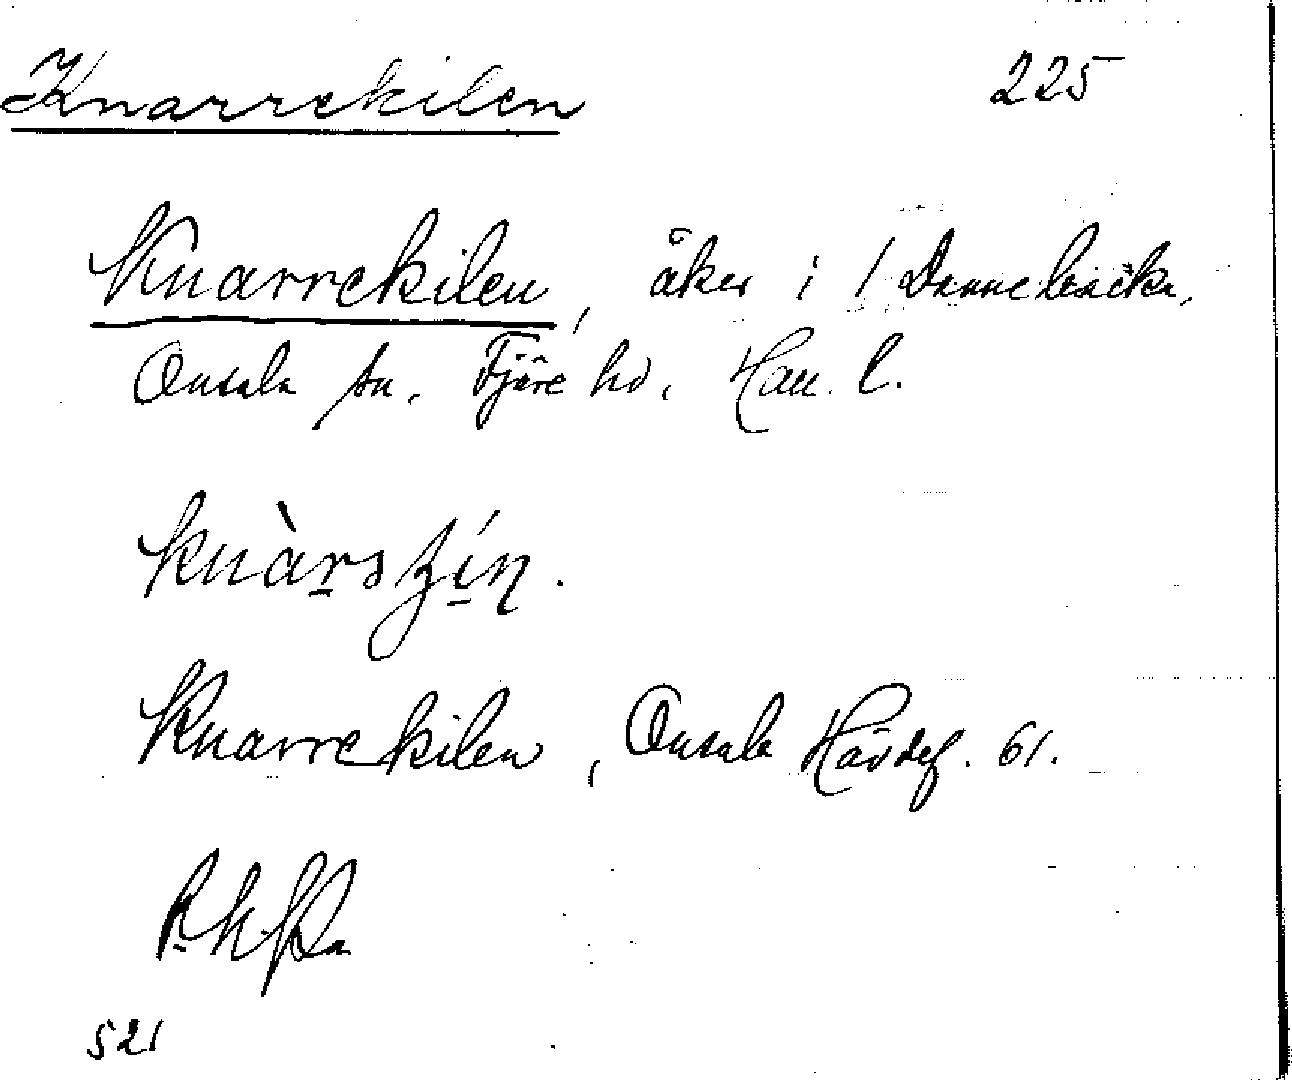 Knarrekilen 225
Knarrekilen, åker i 1 Dannebäcka,
Onsala sn. Fjäre hd, Hall. l.
Knarrekilen, Onsala Hävdef. 61.
521